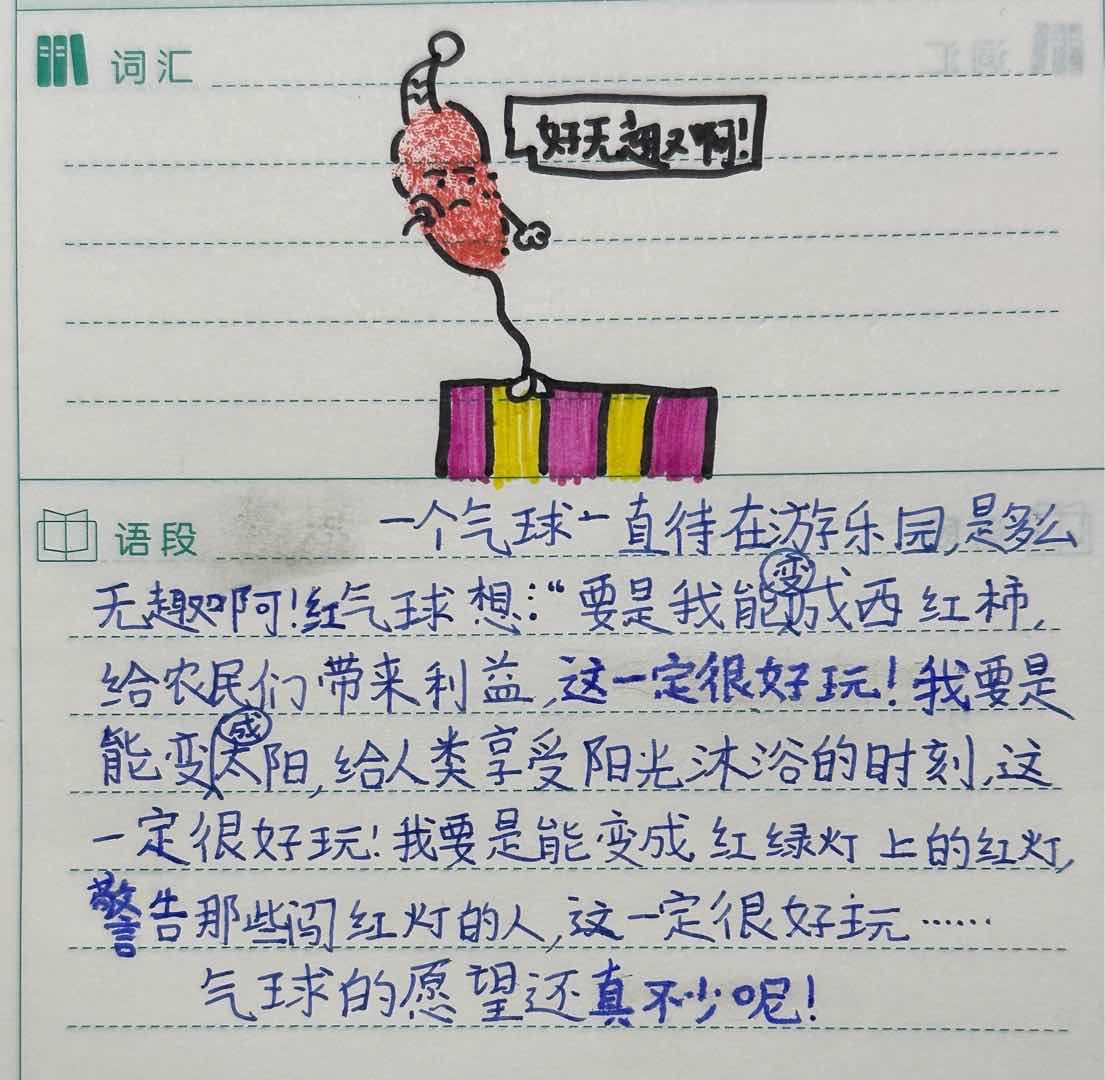 词汇
好无趣又啊!
语段
一个气球一直待在游乐园,是多么
无趣啊!红气球想:“要是我能变成西红柿,
给农民们带来利益,这一定很好玩!我要是
能变成太阳,给人类享受阳光沐浴的时刻,这
一定很好玩!我要是能变成红绿灯上的红灯,
警告那些闯红灯的人,这一定很好玩……
气球的愿望还真不少呢!